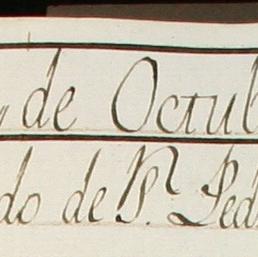 de Octub
do de Sn. Ped